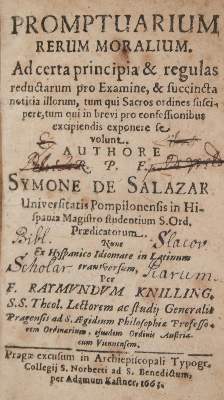 PROMPTUARIUM
RERUM MORALIUM.
Ad certa principia & regulas
reductarum pro Examine, & succincta
notitia illorum, tum qui Sacros ordines susci-
pere, tum qui in brevi pro confessionibus
excipiendis exponere se
volunt.
AUTHORE
R. P. F.
SYMONE DE SALAZAR.
Universitatis Pompilonensis in Hi-
spania Magistro studentium S. Ord.
Prædicatorum.
Bibl. Nunc Slacov.
Ex Hyspanico Idiomate in Latinum
Scholar transversum, Piarum.
Per
F. RAYMUNDUM KNILLING,
SS. Theol. Lectorem ac studij Generalis
Pragensis ad S. Ægidium Philosophiæ Professo-
rem Ordinarium, ejusdem Ordinis Austria-
cum Viennensem.
Pragæ excusum in Archiepiscopali Typogr.
Collegij S. Norberti ad S. Benedictum,
per Adamum Kastner, 1665.